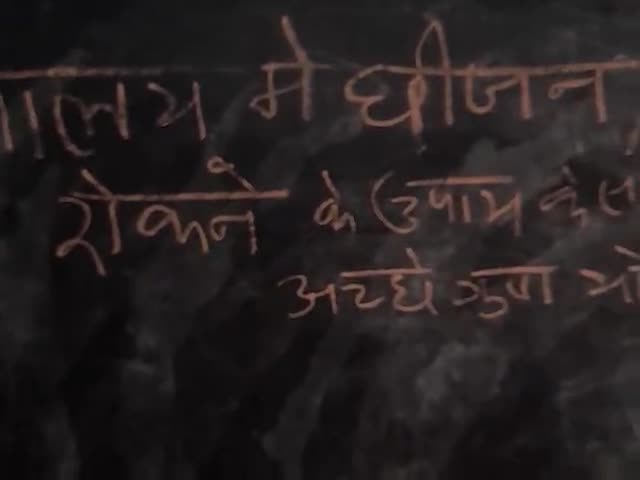 ालय मे छीजन
रोकने के उपाय के
अच्छे गुण